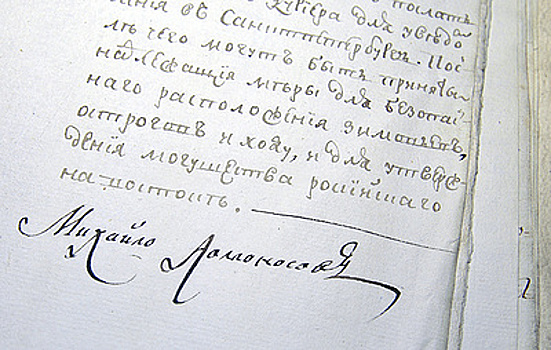 курїера для увѣдо
ленїя въ Санктпетербургъ. Пос
лѣ чего могутъ быть приняты
надлежащїя мѣры для безопас
наго расположенїя зимовьевъ,
остроговъ и ходу, и для утверж
денїя могущества россїйскаго
на востокѣ.
Михайло Ломоносовъ